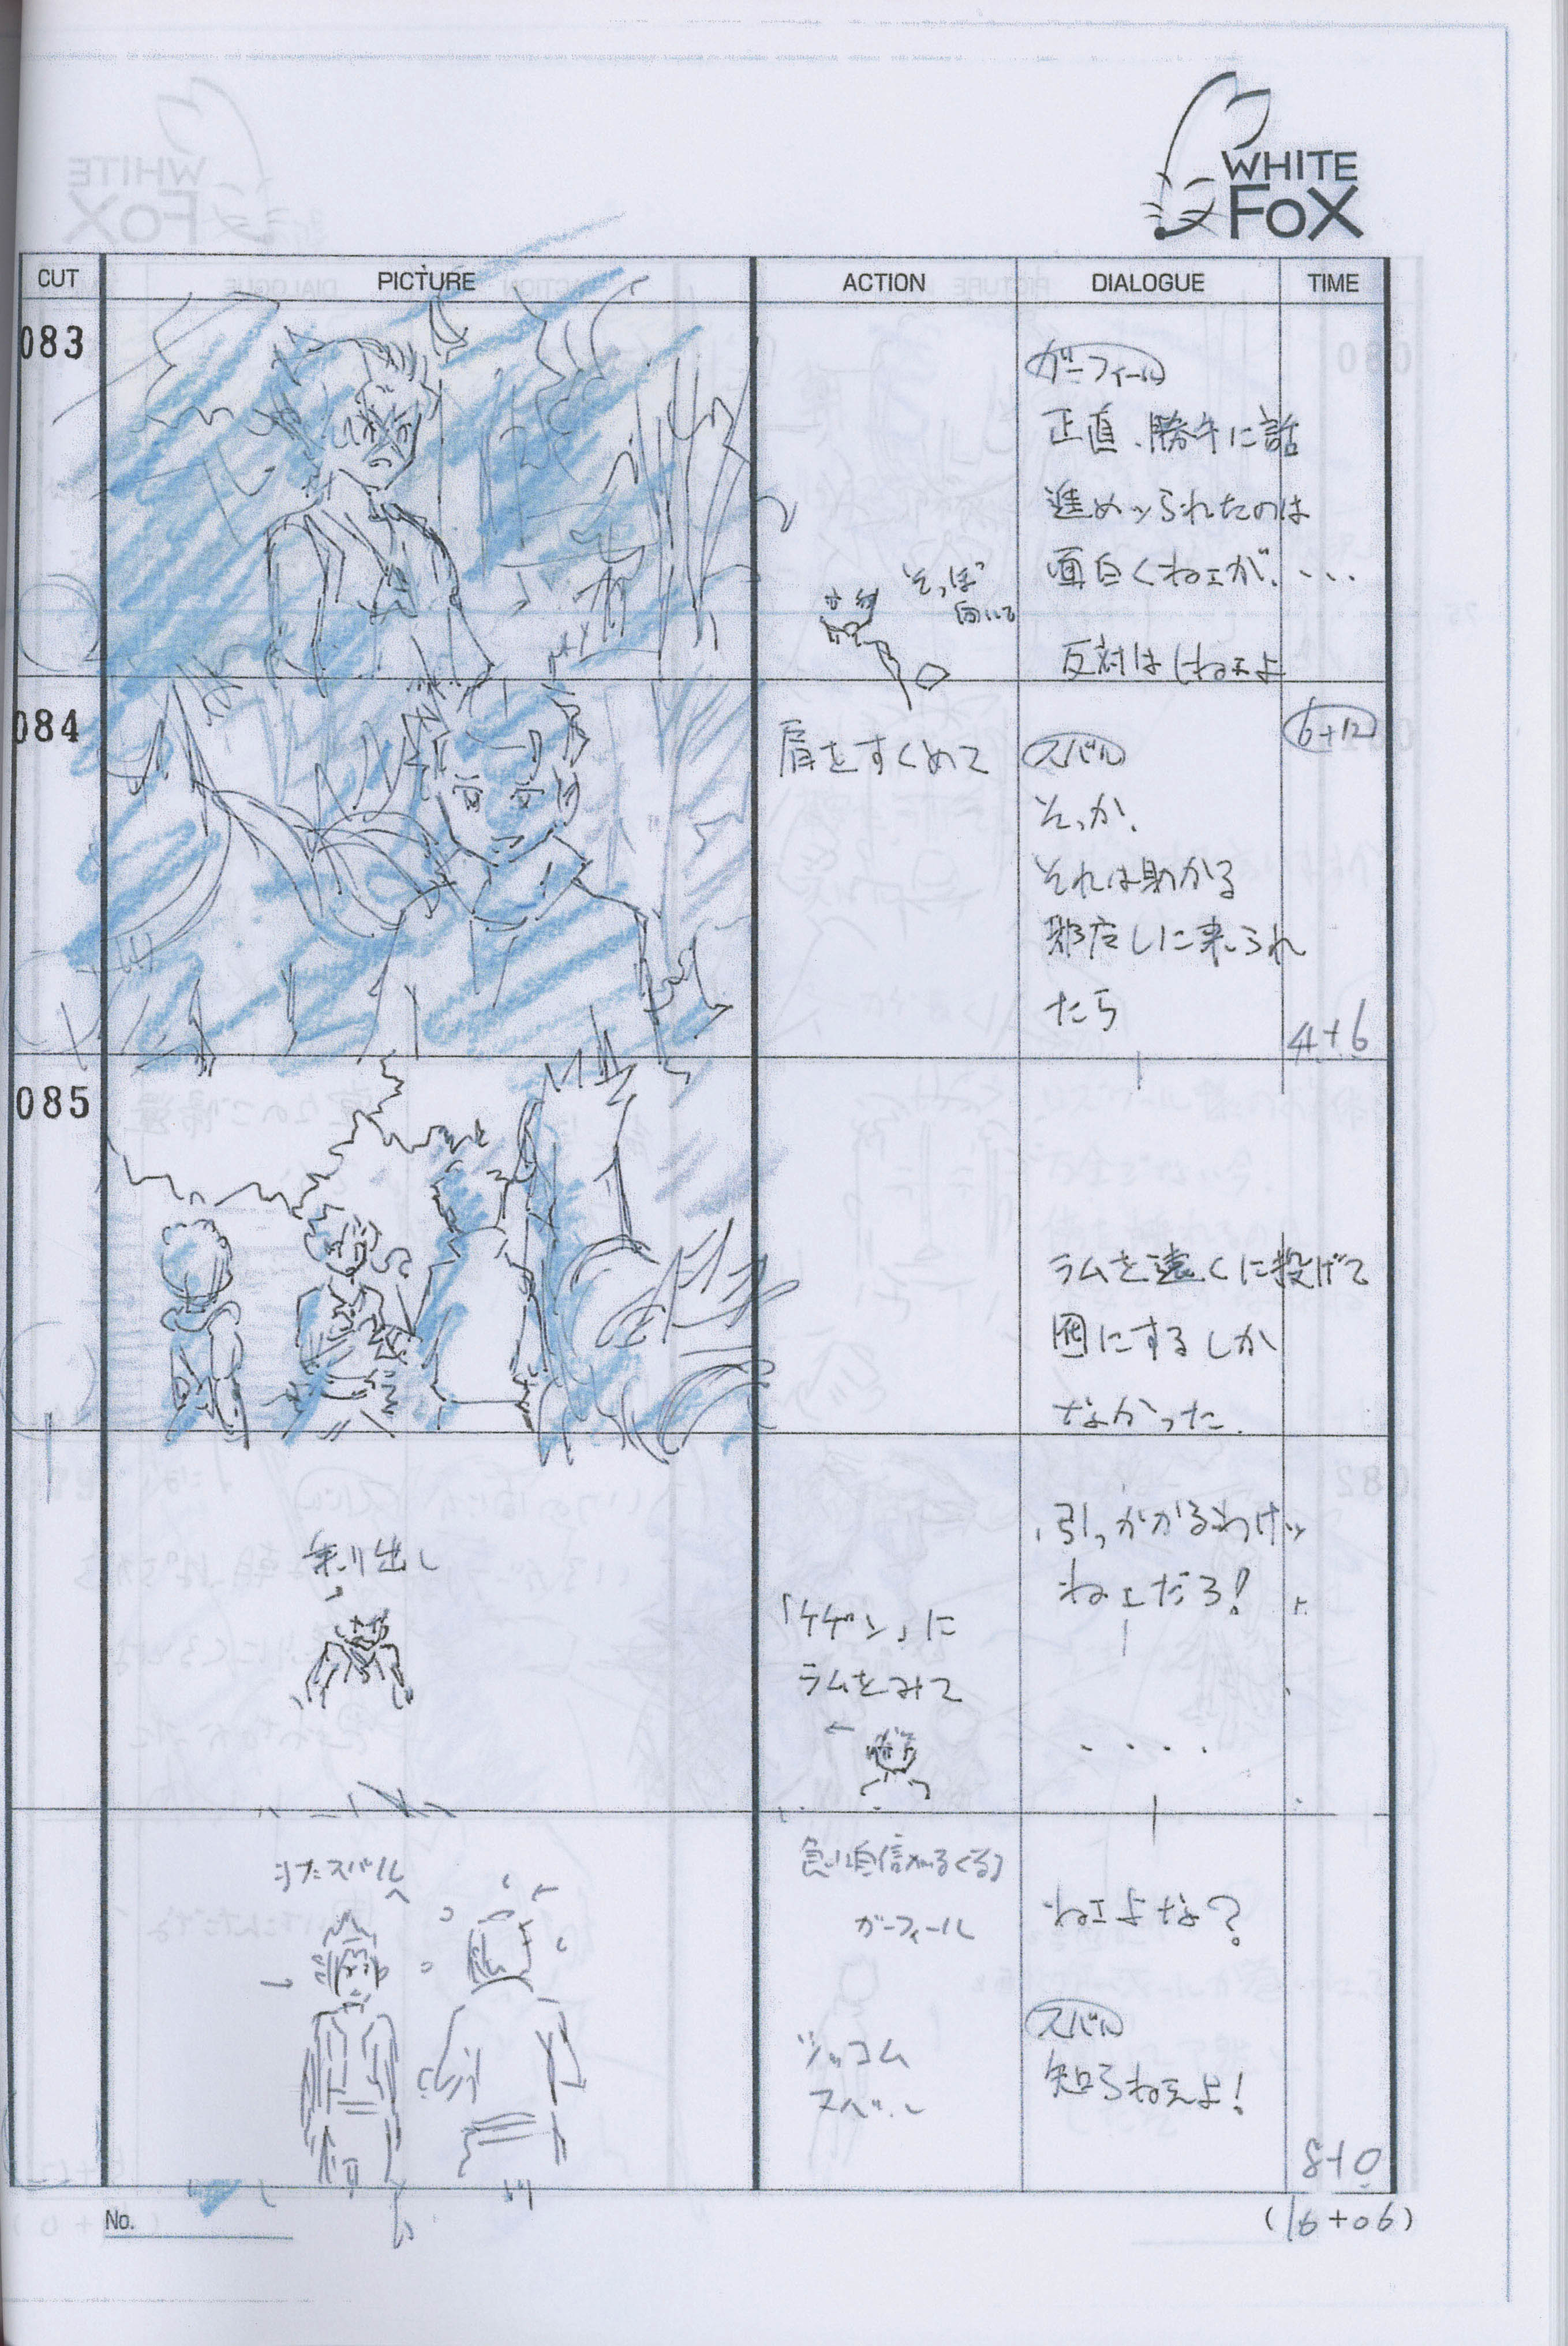 WHITE
FOX
CUT
PICTURE
ACTION
DIALOGUE
TIME
083
そっぽ
向いて
ガーフィール
正直、勝手に話
進めッられたのは
面白くねェが、・・・
反対はしねェよ
6+12
084
肩をすくめて
スバル
そっか、
それは助かる
邪魔しに来られ
たら
4+6
085
ラムを遠くに投げて
囮にするしか
なかった、
乗り出し
「ケゲン」に
ラムをみて
引っかかるわけッ
ねェだろ!
・・・・
スバル
自信
なくなる
ガーフィール
ねェよな?
ツッコム
スバル
スバル
知らねえよ!
8+0
No.
(18+06)